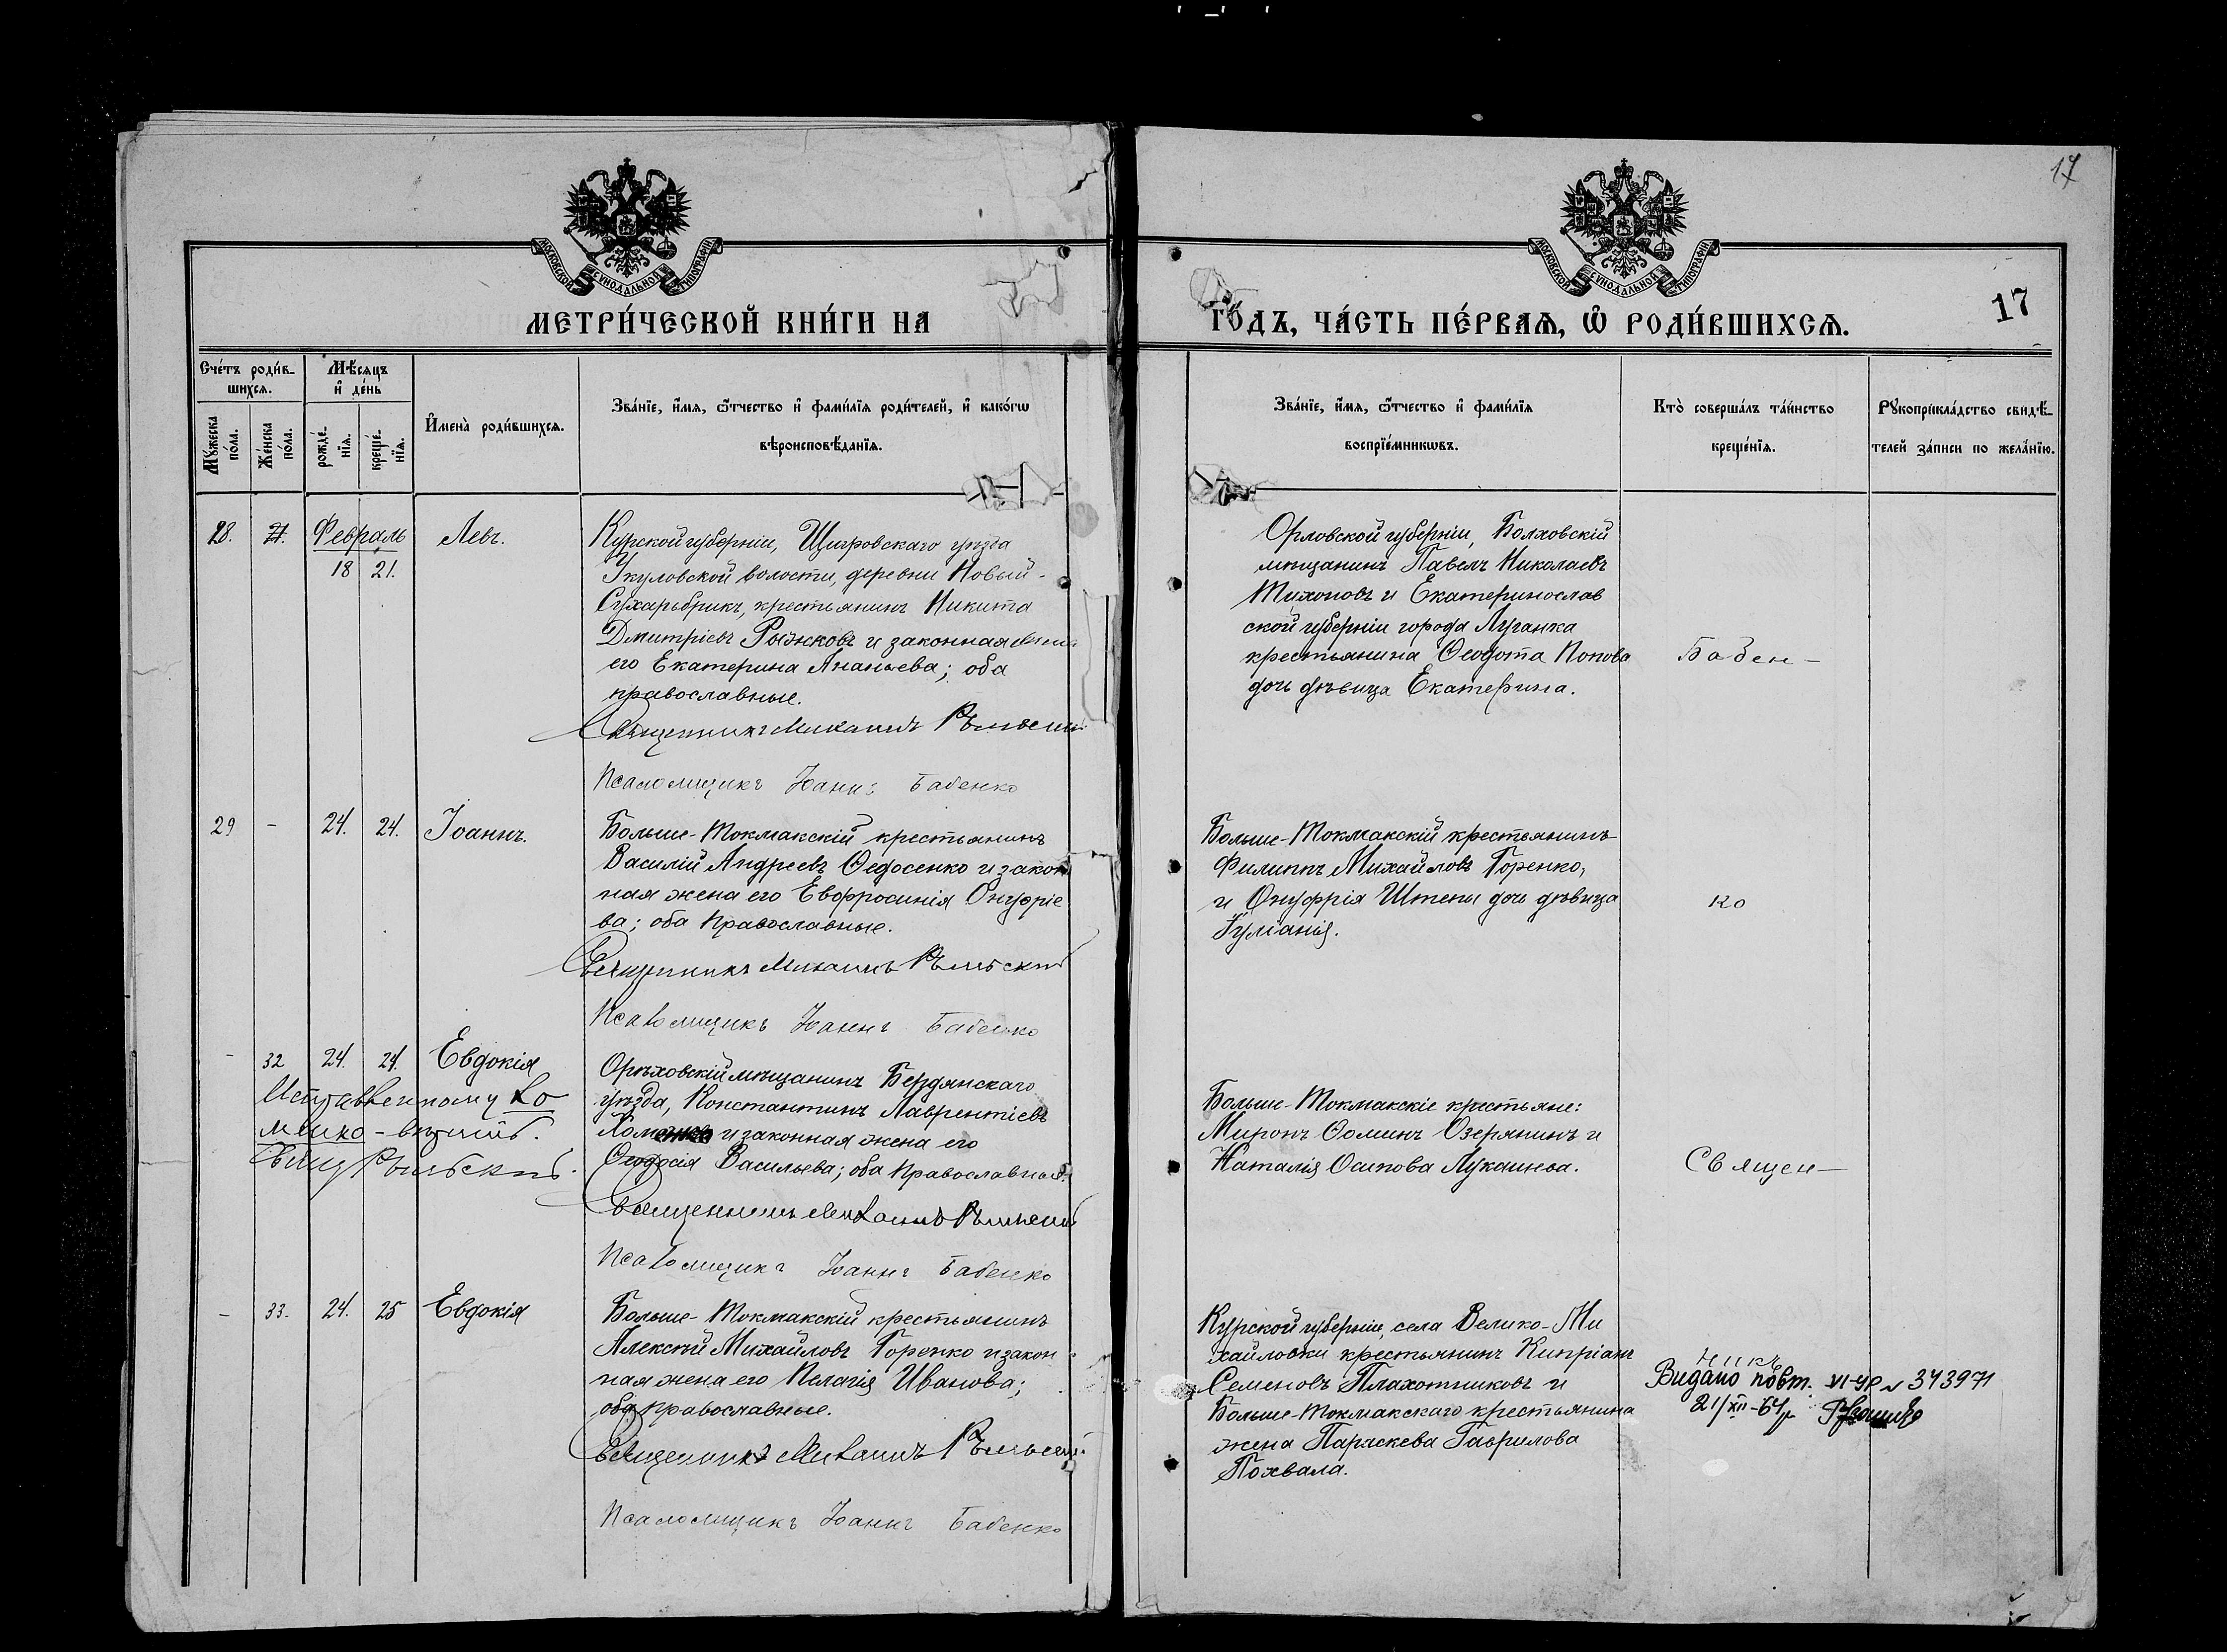 17
МОСКОВСКОЙ СѴНОДАЛЬНОЙ ТИПОГРАФІИ
МОСКОВСКОЙ СѴНОДАЛЬНОЙ ТИПОГРАФІИ
МЕТРИ́ЧЕСКОЙ КНИ́ГИ НА
ГО́ДЪ, ЧА́СТЬ ПЕ́РВАѦ, Ѽ РОДИ́ВШИХСѦ.
17
Сче́тъ роди́в-
шихсѧ.
Мѣ́сѧцъ
и҆ де́нь
Мꙋ́жеска
по́ла.
Же́нска
по́ла.
рожде́-
нїѧ.
креще́-
нїѧ.
И҆мена̀ роди́вшихсѧ.
Зва́нїе, и҆́мѧ, ѻ҆́тчество и҆ фами́лїѧ роди́телей, и҆ како́гѡ
вѣроисповѣ́данїѧ.
Зва́нїе, и҆́мѧ, ѻ҆́тчество и҆ фами́лїѧ
воспрїе́мникѡвъ.
Кто̀ соверша́лъ та́инство
креще́нїѧ.
Рꙋкоприкла́дство свидѣ́-
телей за́писи по жела́нїю.
28. Февраль Левъ.
18 21.
Курской губерніи, Щигровскаго уѣзда
волости, деревни Новый-
крестьянинъ Никита
Дмитріевъ Рыжковъ и законная жена
его Екатерина Ананьева; оба
православные.
Священникъ Михаилъ Рыльскій
Псаломщикъ Іоаннъ Бабенко
Орловской губерніи, Болховскій
мѣщанинъ Павелъ Николаевъ
Тихоновъ и Екатеринослав
ской губерніи города Луганка
крестьянина Ѳеодота Попова
дочь дѣвица Екатерина.
Бабен-
29 - 24. 24. Іоаннъ.
Больше-Токмакскій крестьянинъ
Василій Андреевъ Ѳедосенко и закон
ная жена его Евфросинія Онуфріе
ва; оба православные.
Священникъ Михаилъ Рыльскій
Псаломщикъ Іоаннъ Бабенко
Больше-Токмакскій крестьянинъ
Филиппъ Михайловъ Горенко,
и Онуфрія Штепы дочь дѣвица
Іуліанія.
ко
- 32 24. 24. Евдокія
Исправленному Хо
менко - вѣрить.
Свящ. Рыльскій.
Орѣховскій мѣщанинъ Бердянскаго
уѣзда, Константинъ Лаврентіевъ
и законная жена его
Ѳеодосія Васильева; оба православные.
Священникъ Михаилъ Рыльскій
Псаломщикъ Іоаннъ Бабенко
Больше-Токмакскіе крестьяне:
Миронъ Ѳоминъ Озерянинъ и
Наталія Осипова Лукаиньа.
Священ-
- 33. 24. 25 Евдокія
Больше-Токмакскій крестьянинъ
Алексѣй Михайловъ Горенко и закон
ная жена его Пелагія Иванова;
оба православные.
Священникъ Михаилъ Рыльскій
Псаломщикъ Іоаннъ Бабенко
Курской губерніи, села Велико-Ми
хайловки крестьянинъ Кипріанъ
Семеновъ Плахотниковъ и
Больше-Токмакскаго крестьянина
жена Параскева Гаврилова
Похвала.
никъ
Видано повт. VI-УР № 343971
21/XII-64р